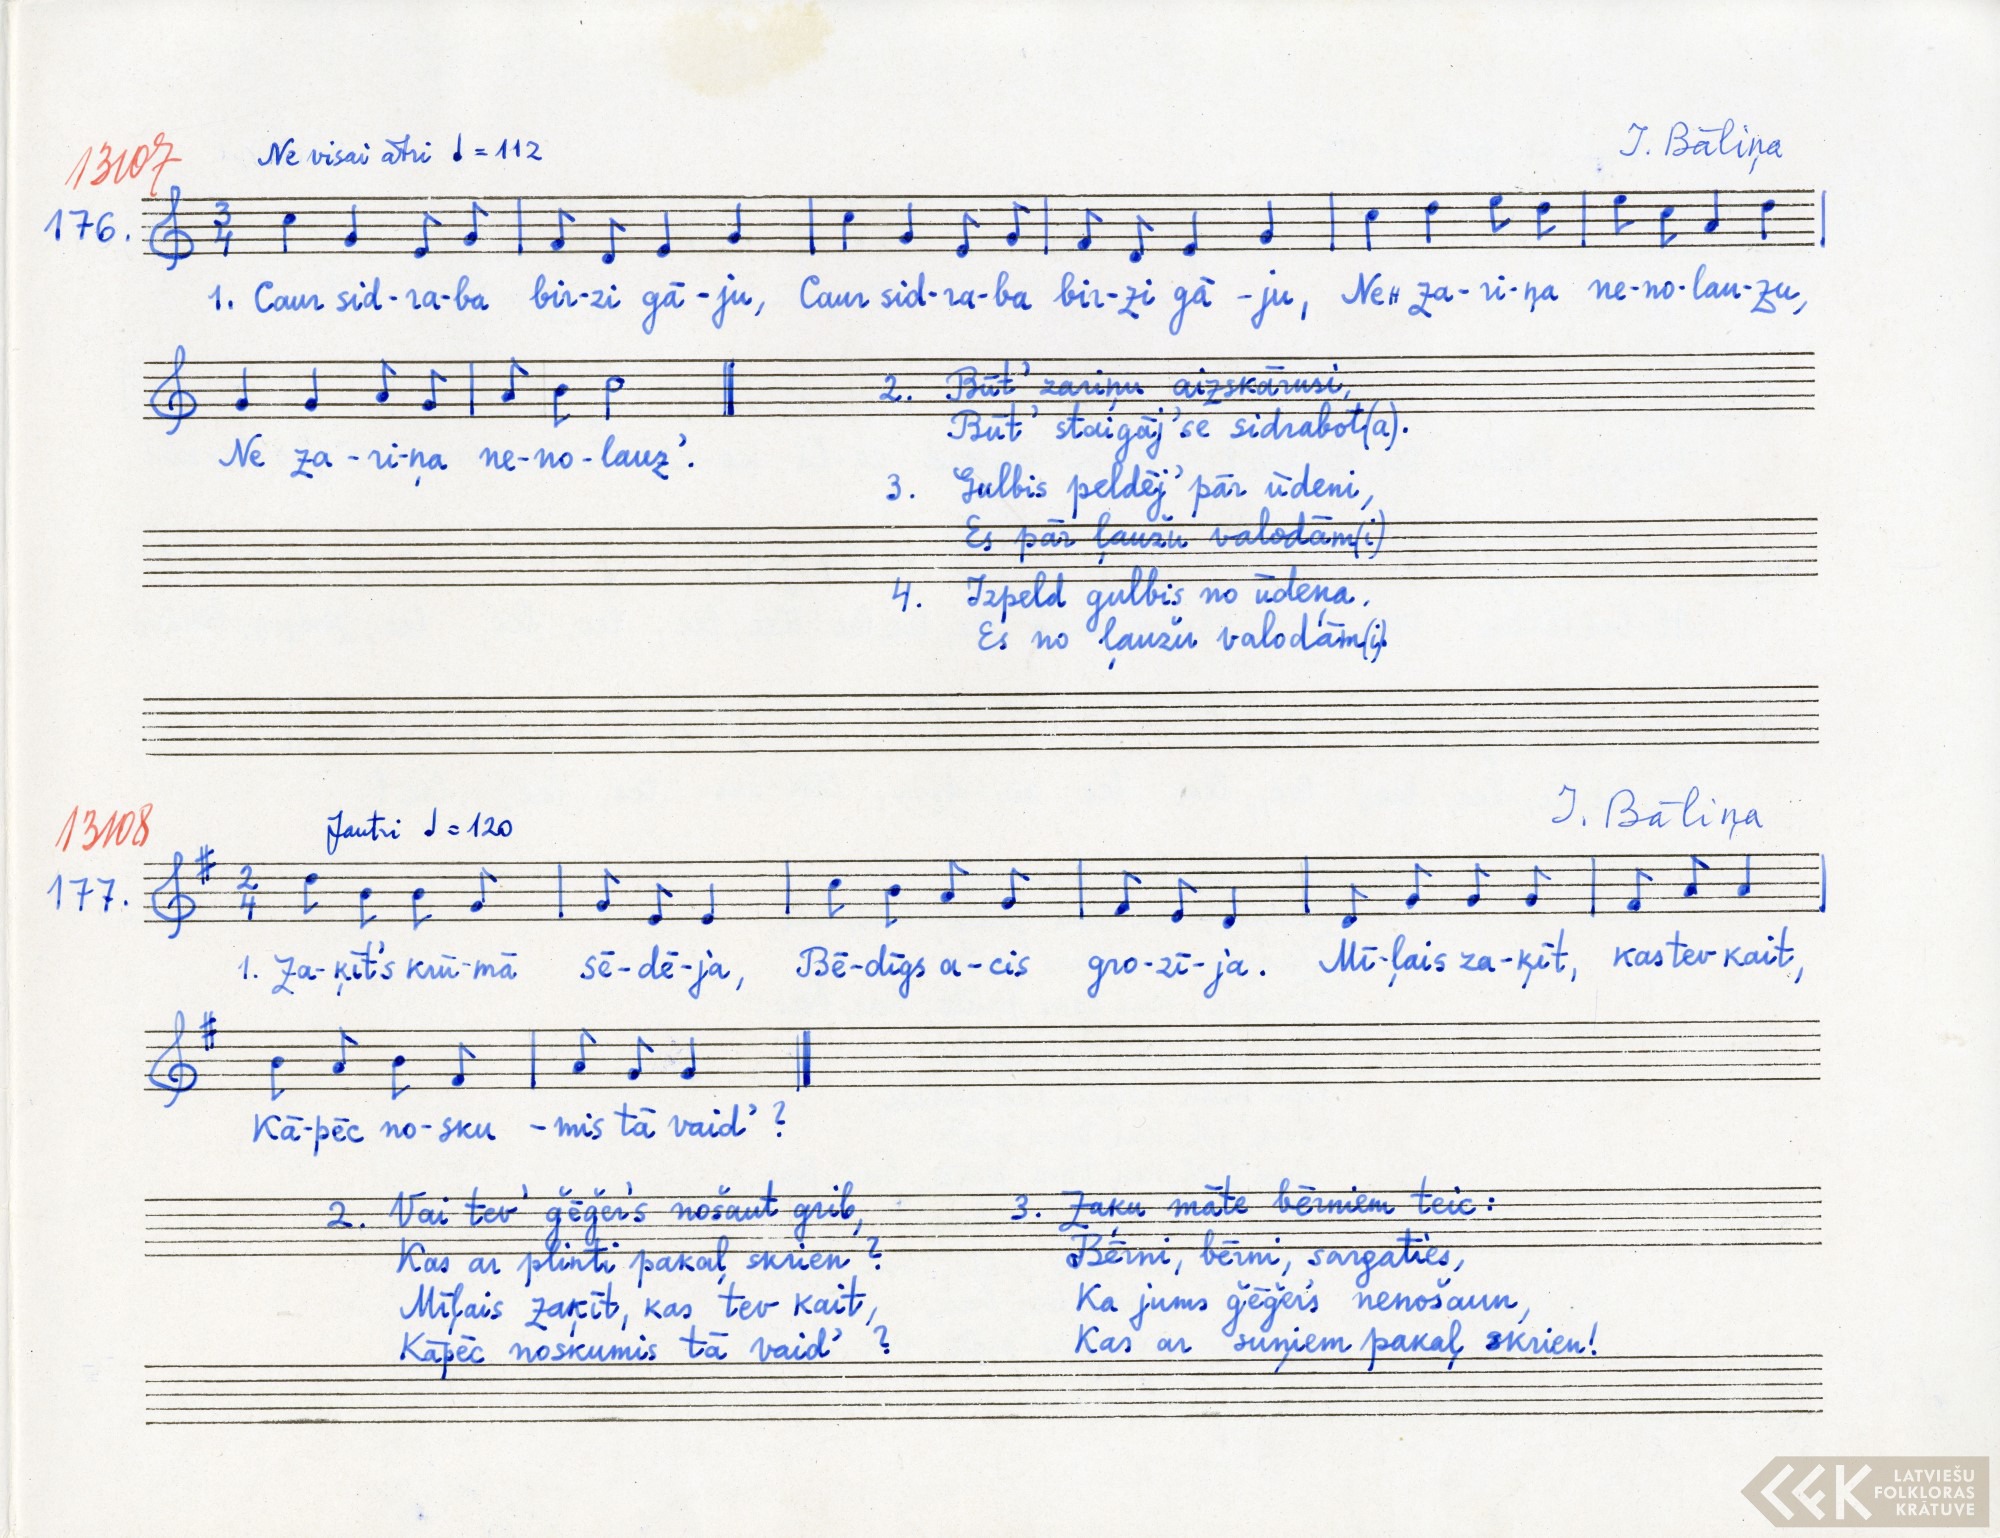 13107
Ne visai ātri ♩ = 112
J. Bāliņa
176.
3/4
1. Caur sid-ra-ba bir-zi gā-ju, Caur sid-ra-ba bir-zi gā-ju, Ne za-ri-ņa ne-no-lau-zu,
Ne za-ri-ņa ne-no-lauz'.
2. Būt' zariņu aizskārusi,
Būt' staigāj'se sidrabot(a).
3. Gulbis peldēj' pār ūdeni,
Es pār ļaužu valodām(i)
4. Izpeld gulbis no ūdeņa,
Es no ļaužu valodām(i).
13108
Jautri ♩ = 120
J. Bāliņa
177.
2/4
1. Za-ķīt's krū-mā sē-dē-ja, Bē-dīgs a-cis gro-zī-ja. Mī-ļais za-ķīt, kas tev kait,
Kā-pēc no-sku-mis tā vaid'?
2. Vai tev' ģēģer's nošaut grib,
Kas ar plinti pakaļ skrien?
Mīļais zaķīt, kas tev kait,
Kāpēc noskumis tā vaid'?
3. Zaķu māte bērniem teic:
Bērni, bērni, sargaties,
Ka jums ģēģer's nenošaun,
Kas ar suņiem pakaļ skrien!
LATVIEŠU
FOLKLORAS
KRĀTUVE